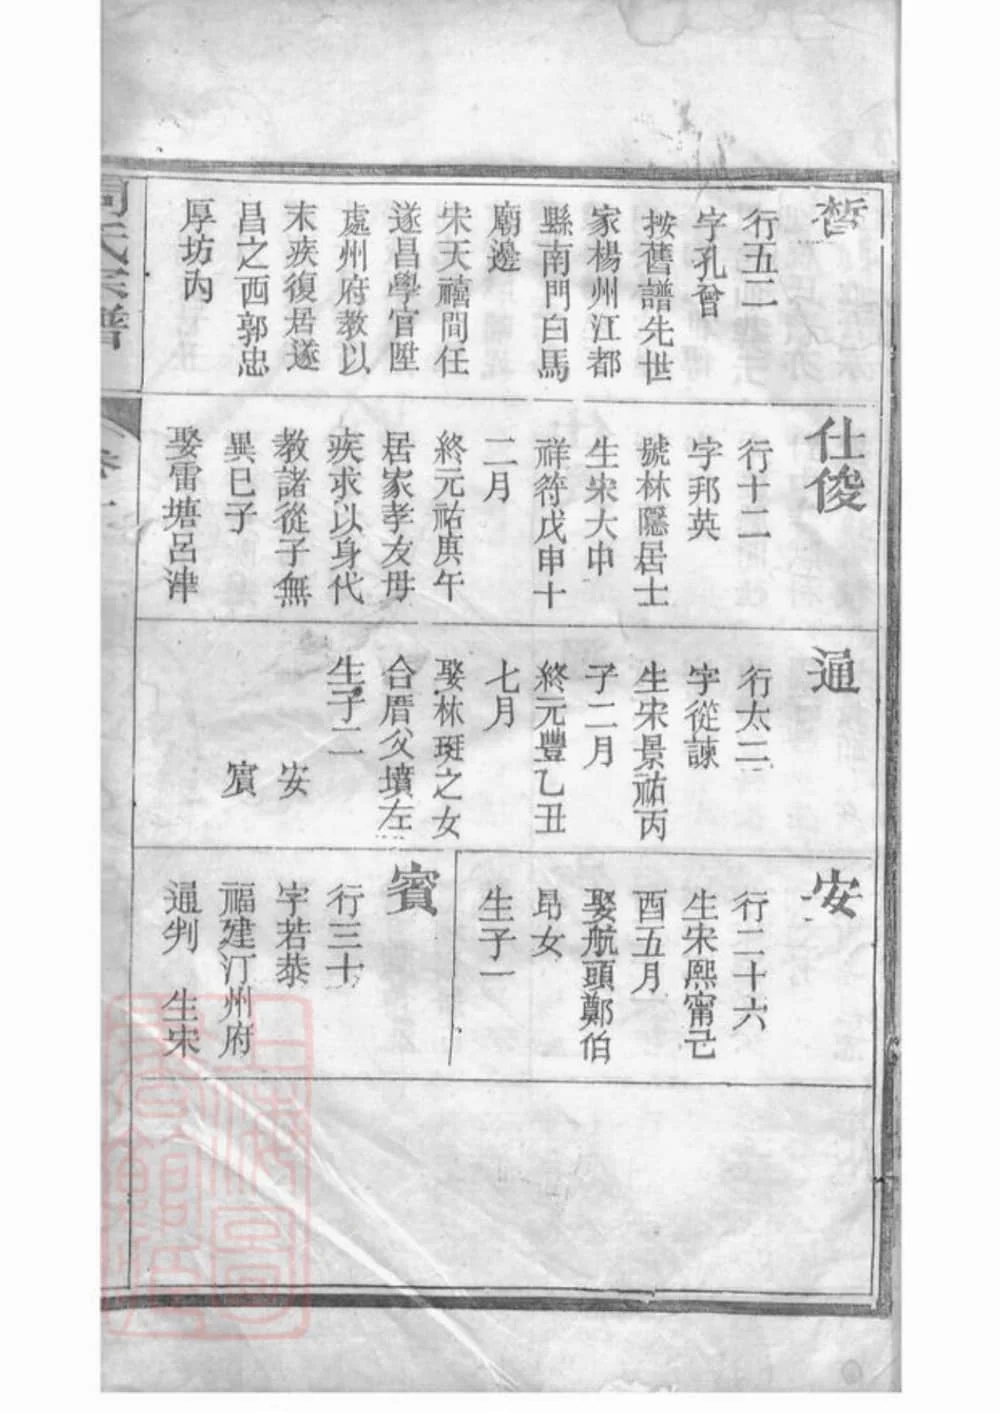 晳
行五二
字孔曾
按舊譜先世
家楊州江都
縣南門白馬
廟邊
宋天禧間任
遂昌學官陞
處州府教以
末疾復居遂
昌之西郭忠
厚坊內
仕俊
行十二
字邦英
號林隱居士
生宋大中
祥符戊申十
二月
終元祐庚午
居家孝友母
疾求以身代
教諸從子無
異己子
娶雷塘呂津
通
行太二
字從諫
生宋景祐丙
子二月
終元豐乙丑
七月
娶林珽之女
合厝父墳左
生子二
安
賓
安
行二十六
生宋熙甯己
酉五月
娶航頭鄭伯
昂女
生子一
賓
行三十
字若恭
福建汀州府
通判 生宋
氏宗譜
卷
上海圖
書館藏